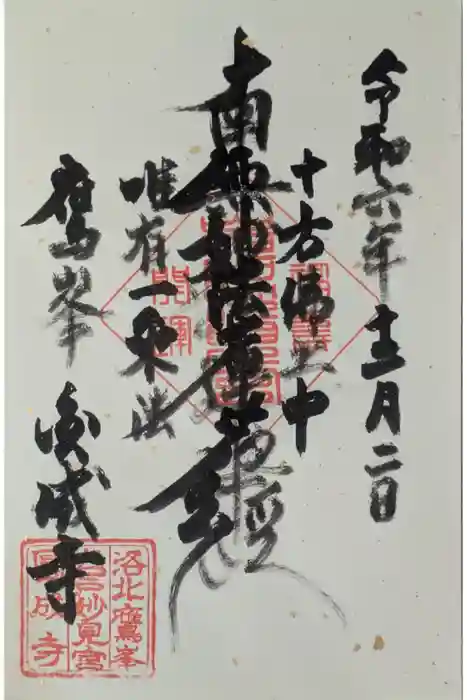 令和六年十二月二日
十方佛土中
南無妙法蓮華経
唯有一乗法
鷹峯
圓成寺
開運
洛北鷹峯
岩戸妙見宮
圓成寺